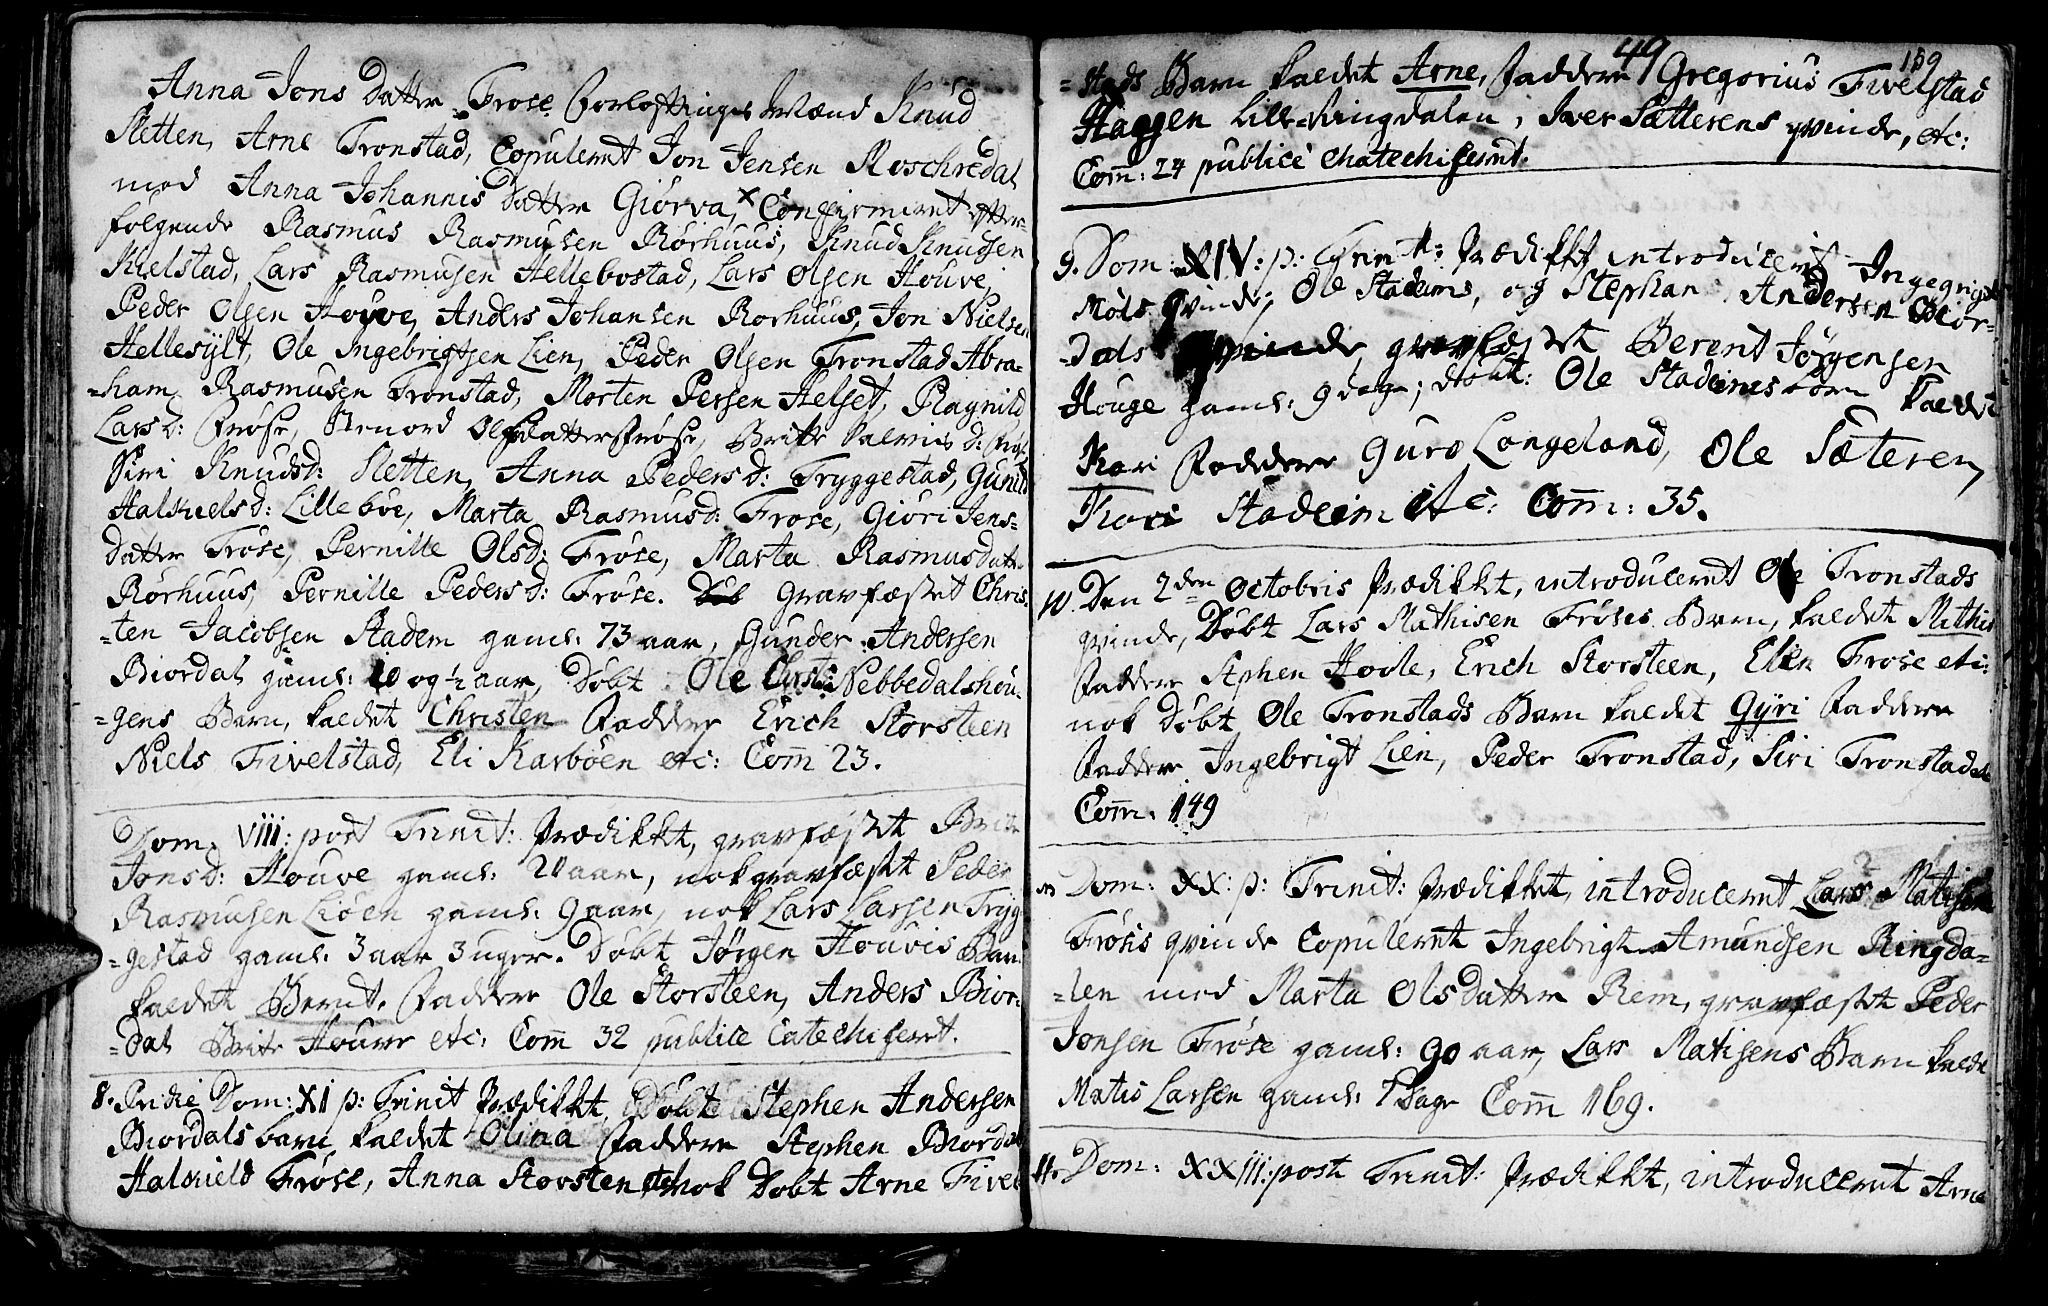 Anna Jons Datter Frøse Forlofnings Mænd Knud
Sletten, Arne Tronstad, Copuleret Jon Jensen
med Anna Johannis Datter Giørva, x Confirmeret efter-
følgende Rasmus Rasmusen Rørhuus, Knud Knudsen
Kielstad, Lars Rasmusen Hellebostad, Lars Olsen Houve,
Peder Olsen Houve, Anders Johansen Rorhuus, Jon Nielsen
Hellesylt, Ole Ingebrigtsen Lien, Peder Olsen Tronstad Abra-
-ham Rasmusen Tronstad, Morten Persen Helset, Ragnild
Larsd: Frøse, Olsdatter Frøse, Brite d:
Siri Knudsd: Sletten, Anna Pedersd: Tryggestad, Gunild
Halkielsd: Lillebøe, Marta Rasmusd: Frose, Giøri Jens-
datter Frøse, Pernille Olsd: Frøse, Marta Rasmusdatr
Rørhuus, Pernille Pedersd: Frøse. gravfæstet Chris-
-ten Jacobsen Stadem gaml: 73 aar, Gunder Andersen
Biordal gaml: 10 og ½ aar, Døbt Ole Nebbedalshou-
-gens Barn, kaldet Christen Faddere Erich Storsteen
Niels Fivelstad, Eli Karbøen etc: Com̅ 23.
Dom. VIII: post Trinit: Prædikket, gravfæstet Brite
Jonsd: Houve gaml: 20 aar, nok gravfæstet Peder
Rasmusen Liøen gaml: 9 aar, nok Lars Larsen Tryg-
-gestad gaml: 3 aar 3 uger. Døbt Jørgen Houvis Barn
kaldet Bernt. Faddere Ole Storsteen, Anders Bior-
-dal Brite Houve etc: Com̅ 32 publice Catechiseret.
8. Pridie Dom: XI p: Trinit Prædikket, Døbt Stephen Andersen
Biordals barn kaldet Olina Faddere Stephen Biordal
Halkield Frøse, Anna Storsten etc nok Døbt Arne Fivel
49 159
-stads Barn kaldet Arne, Faddere Gregorius Fivelstad
Haagen Lille-Ringdalen, Iver Sætterens qvinde, etc:
Com̅: 24 publicè Chatechiseret.
9. Dom: XIV: p: Trinit: Prædikket introduceret
Mols qvinde, Ole Stadems, og Stephan Andersen Biør-
-dals qvinde, gravfæstet Berent Jørgensen
Houge gaml: 9 dage; døbt: Ole Stadeims børn kaldet
Kari Faddere Guro Longeland, Ole Sæteren,
Kari Stadeim etc: Com̅: 35.
10. Den 2den Octobris Prædikket, introduceret Ole Tronstads
qvinde, Døbt Lars Mathisen Frøses Barn, kaldet Mathis
Faddere Stphen Hoole, Erich Storsteen, Elen Frose etc:
nok Døbt Ole Tronstads Barn kaldet Gyri Faddere
Faddere Ingebrigt Lien, Peder Tronstad, Siri Tronstad
Com̅. 149
Dom: XX: p: Trinit: Prædikket, introduceret Lars Matisen
Frøsis qvinde Copuleret Ingebrigt Amundsen Ringda-
-len med Marta Olsdatter Rem, gravfæstet Peder
Jonsen Frøse gaml: 90 aar, Lars Matisens Barn kaldet
Matis Larsen gaml: 7 Dage Com̅ 169.
11. Dom: XXIII: post Trinit: Prædikket, introduceret Arne